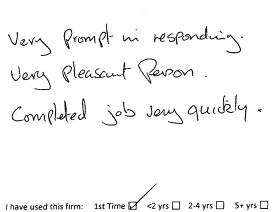 Very Prompt in responding.
Very Pleasant Person.
Completed job very quickly.
I have used this firm: 1st Time ☑ <2 yrs ☐ 2-4 yrs ☐ 5+ yrs ☐